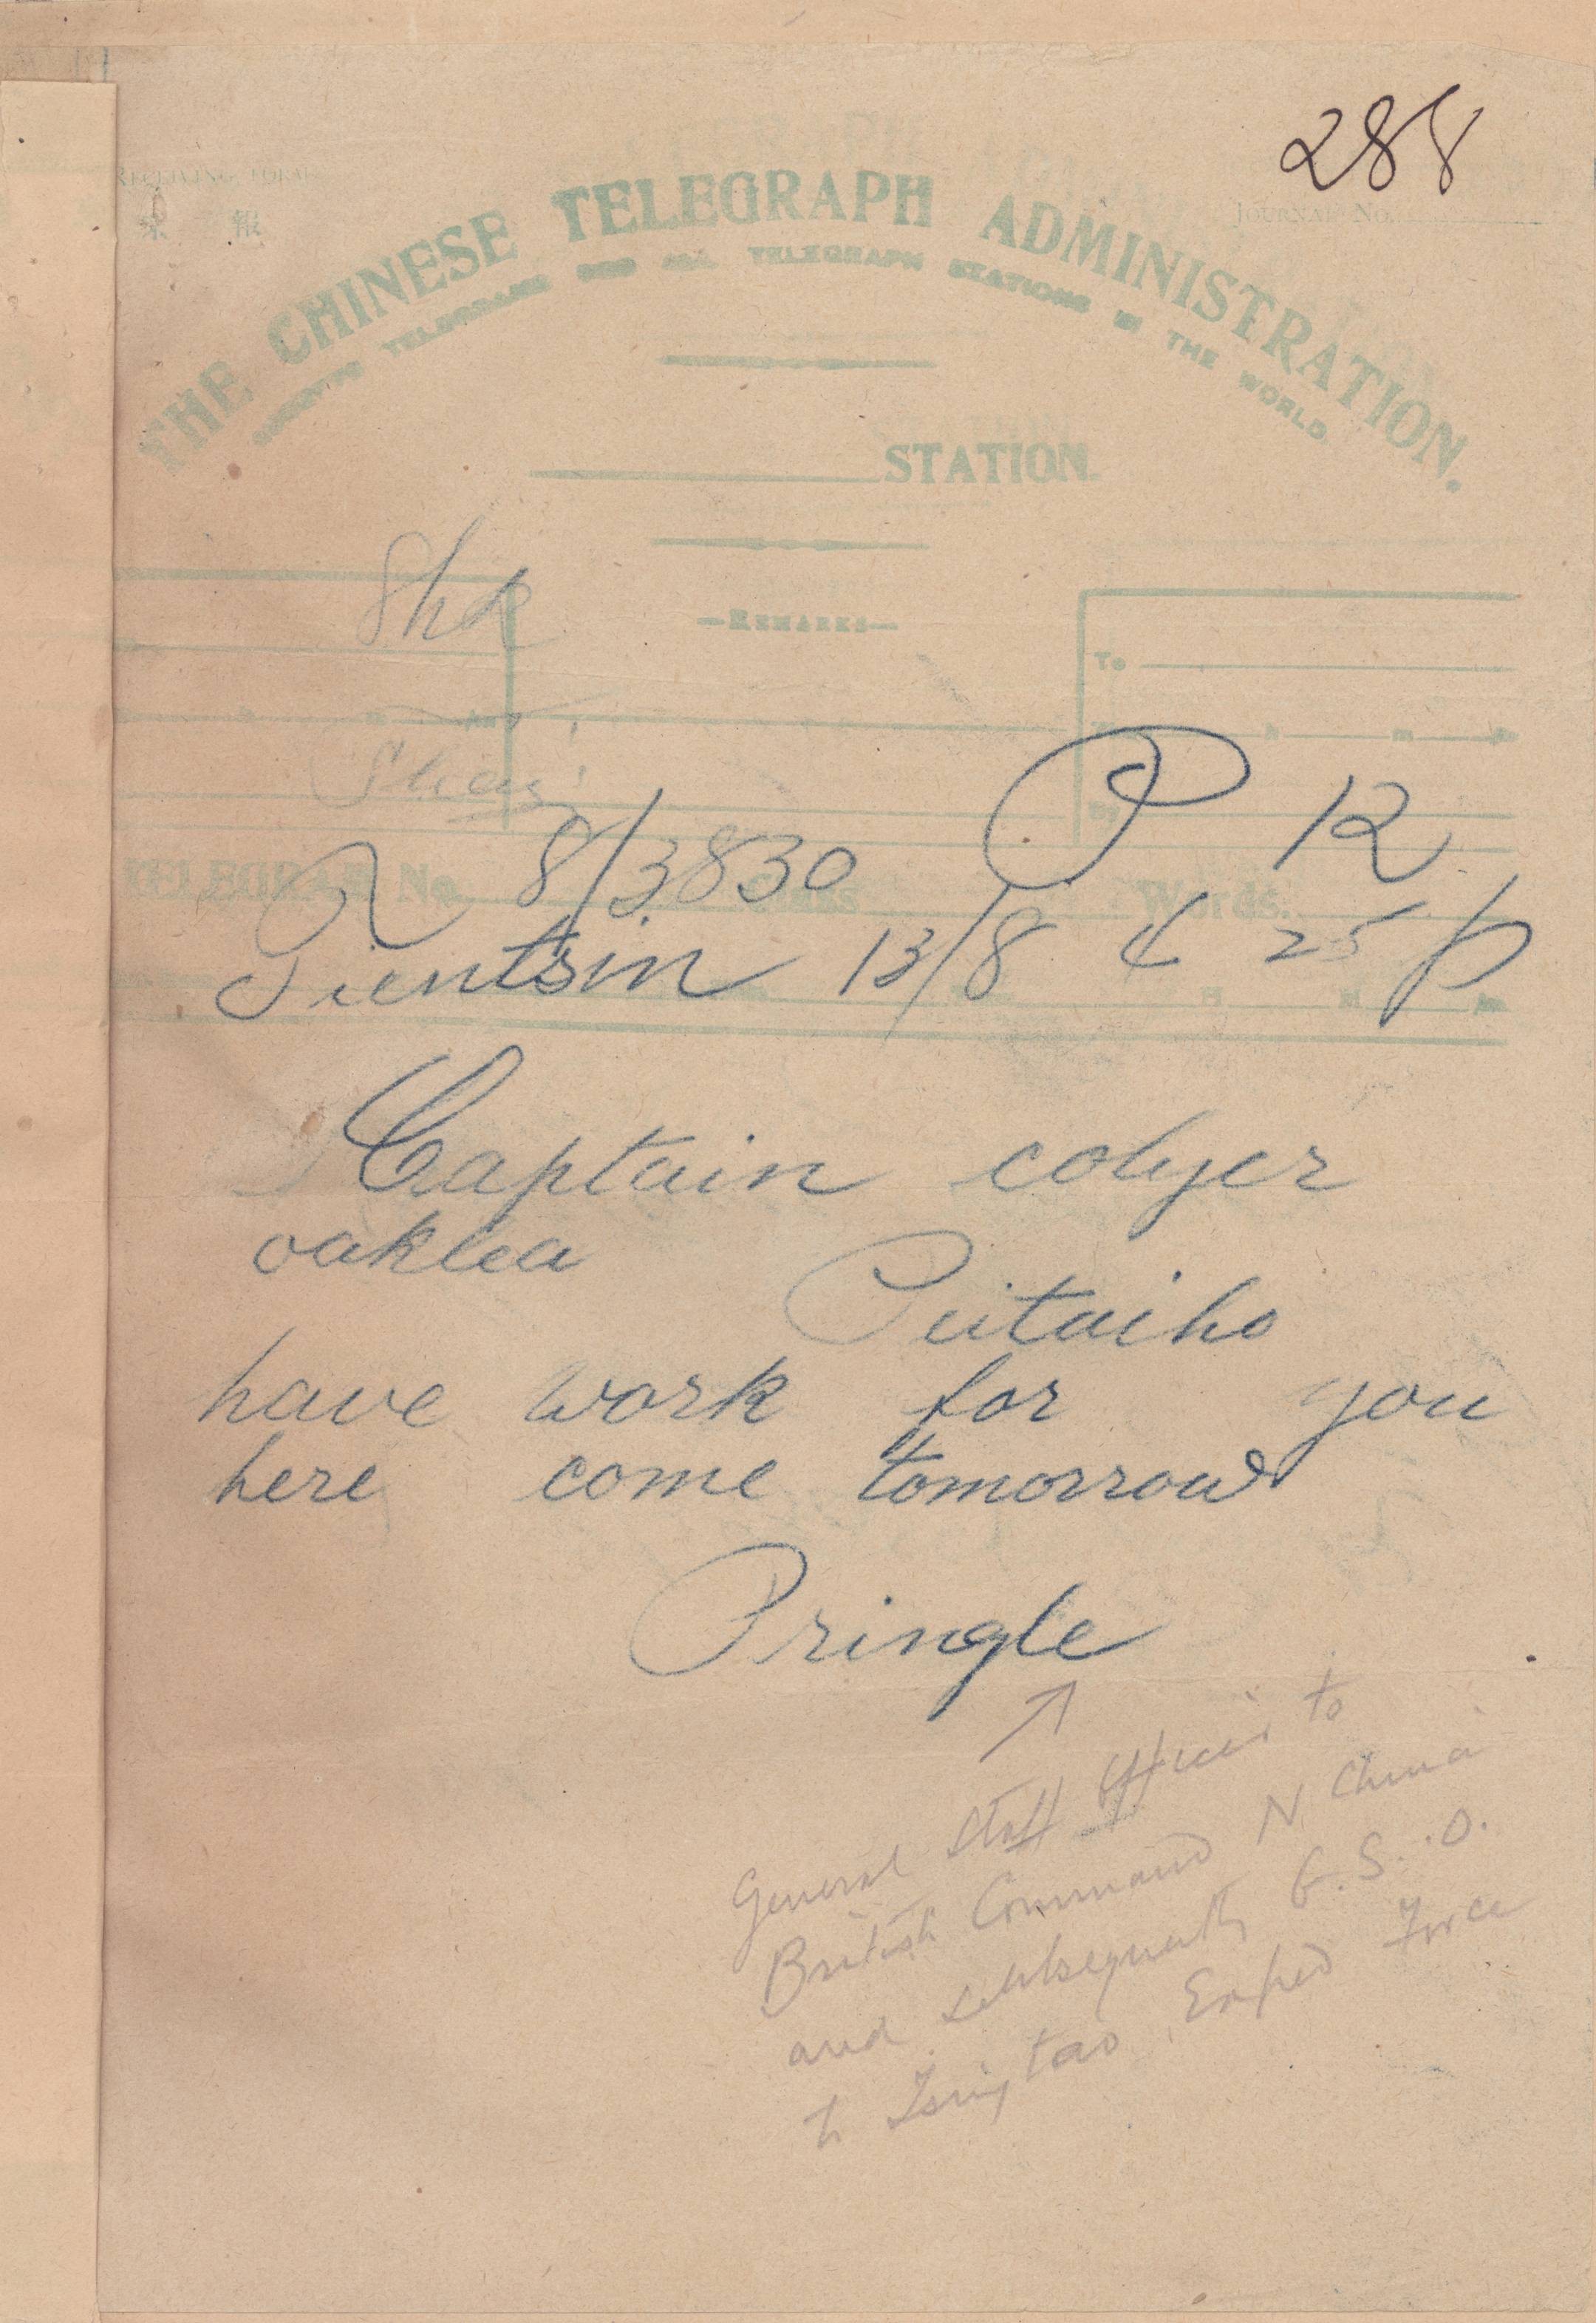 288
RECEIVING FORM
JOURNAL No.
報
THE CHINESE TELEGRAPH ADMINISTRATION.
TELEGRAMS AND ALL TELEGRAPH STATIONS IN THE WORLD
STATION.
—REMARKS—
To
h m
TELEGRAM No. Class Words.
8/3830 P 12
Tientsin 13/8 4 25 p
H M
Captain colyer
oaklea
Peitaiho
have work for you
here come tomorrow
Pringle
General Staff Officer to
British Command N China
and subsequently G.S.O.
to Tsingtao Exped Force